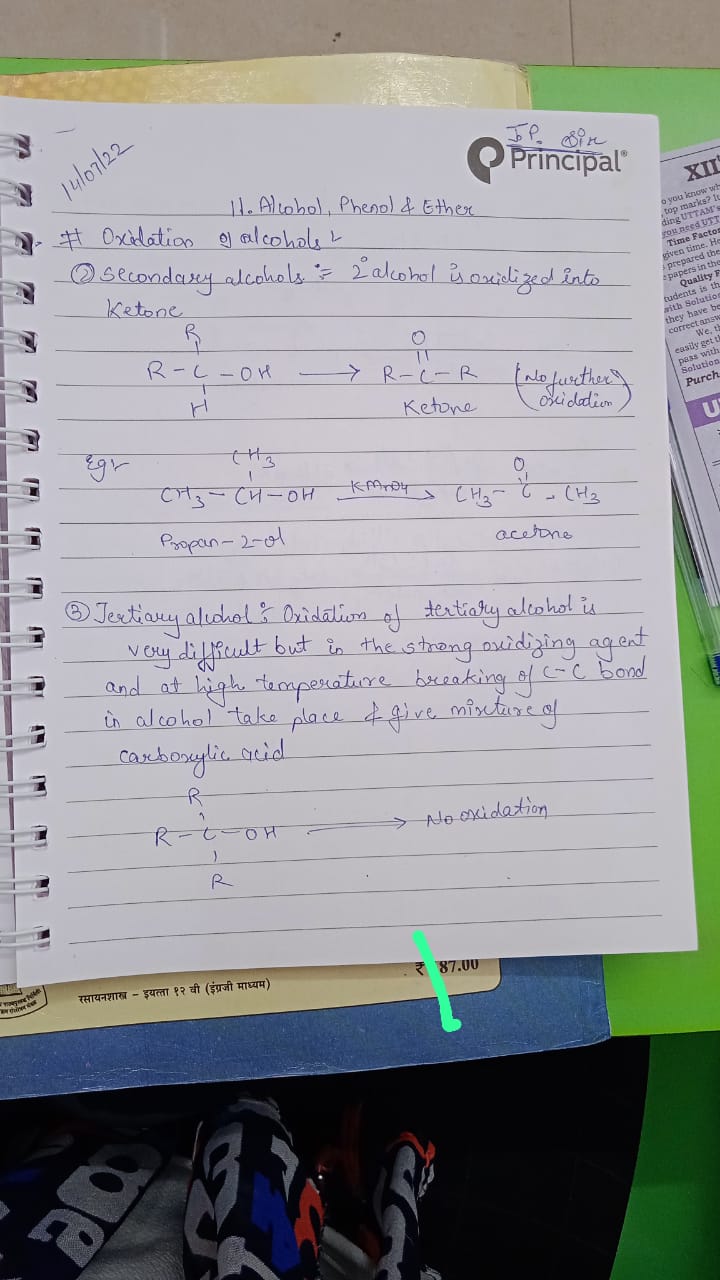 14/07/22
J.P. Sir
Principal®
11. Alcohol, Phenol & Ether
# Oxidation of alcohols
② Secondary alcohols :- 2° alcohol is oxidized into
Ketone
R
R-C-OH → R-C-R (No further oxidation)
O
H
Ketone
Eg:-
CH3
O
CH3-CH-OH KMnO4 → CH3-C-CH3
Propan-2-ol
acetone
③ Tertiary alcohol : Oxidation of tertiary alcohol is
very difficult but in the strong oxidizing agent
and at high temperature breaking of C-C bond
in alcohol take place & give mixture of
carboxylic acid
R
R-C-OH → No oxidation
R
रसायनशास्त्र - इयत्ता १२ वी (इंग्रजी माध्यम)
87.00
XII
you know wh
top marks? It
ding UTTAM's
you need UTT
Time Facto
given time. He
prepared the
papers in the
Quality F
tudents is th
with Solution
they have be
correct answ
We, th
easily get th
pass with
Solution
Purch
U